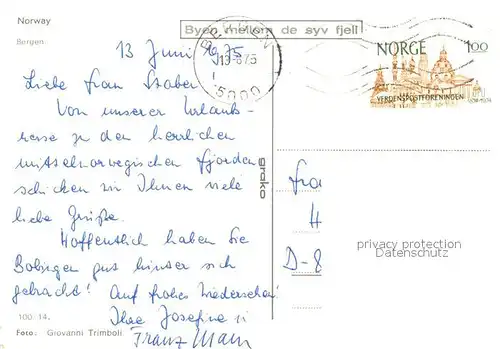 Norway
Bergen.
Byen mellom de syv fjell
BERGEN
13-6 75
5000
NORGE 100
VERDENSPOSTFORENINGEN
13 Juni 1975
Liebe Frau Staber!
Von unserer Urlaubs-
reise zu den herrlichen
mittelnorwegischen Fjorden
schicken wir Ihnen viele
liebe Grüße.
Hoffentlich haben Sie
Bobingen gut hinter sich
gebracht! Auf frohes Wiedersehen!
Ihre Josefine u
Franz
grako
Fra
D-8
privacy protection
Datenschutz
100. 14.
Foto: Giovanni Trimboli